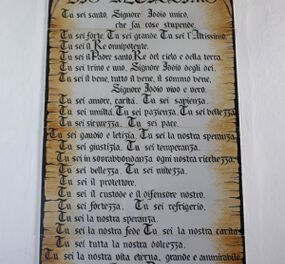 DIO ALTISSIMO
Tu sei santo, Signore Iddio unico,
che fai cose stupende.
Tu sei forte. Tu sei grande. Tu sei l'Altissimo.
Tu sei il Re onnipotente.
Tu sei il Padre santo, Re del cielo e della terra.
Tu sei trino e uno, Signore Iddio degli dei.
Tu sei il bene, tutto il bene, il sommo bene,
Signore Iddio vivo e vero.
Tu sei amore, carità. Tu sei sapienza.
Tu sei umiltà. Tu sei pazienza. Tu sei bellezza.
Tu sei sicurezza. Tu sei pace.
Tu sei gaudio e letizia. Tu sei la nostra speranza.
Tu sei giustizia. Tu sei temperanza.
Tu sei in sovrabbondanza ogni nostra ricchezza.
Tu sei bellezza. Tu sei mitezza.
Tu sei il protettore.
Tu sei il custode e il difensore nostro.
Tu sei fortezza. Tu sei refrigerio.
Tu sei la nostra speranza.
Tu sei la nostra fede. Tu sei la nostra carità.
Tu sei tutta la nostra dolcezza.
Tu sei la nostra vita eterna, grande e ammirabile